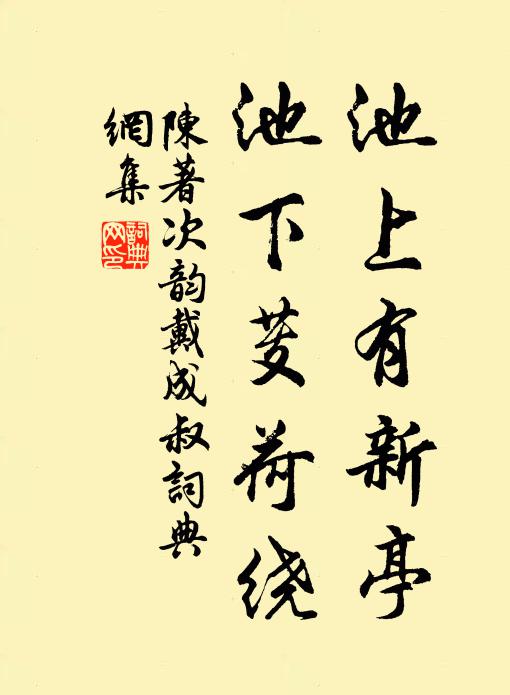 池上有新亭
池下芰荷绕
陳著次韵戴成叔詞典
網集
詞典
网印